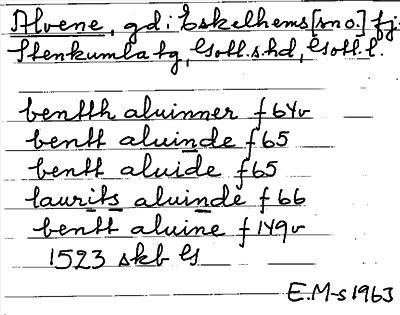 Alvene, gd i Eskelhems [sn o.] fj:
Stenkumla tg, Gotl. s. hd, Gotl. l.
bentth aluinner f 64v
bentt aluinde f 65
bentt aluide f 65
laurits aluinde f 66
bentt aluine f 149v
1523 skb G
E.M-s 1963